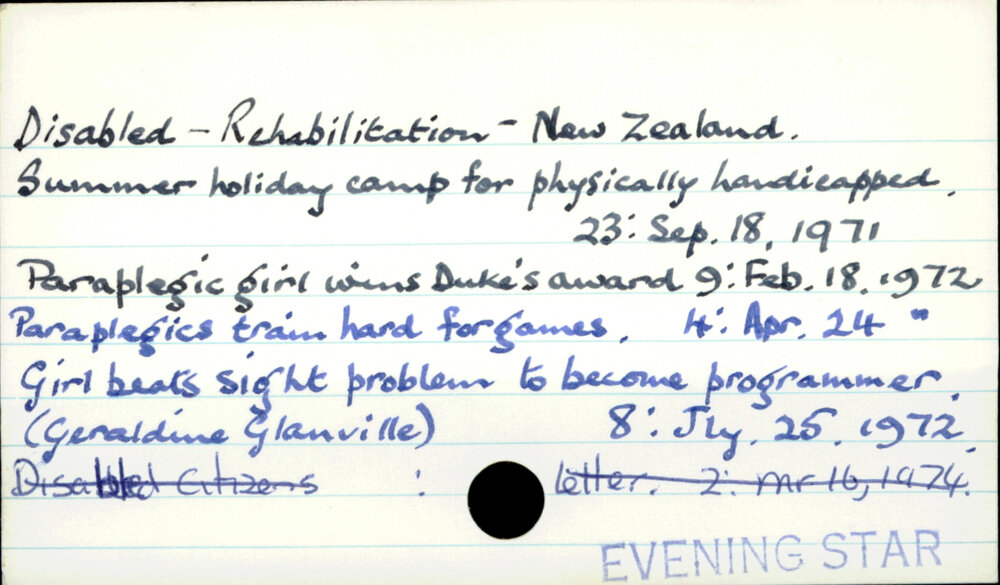 Disabled - Rehabilitation - New Zealand.
Summer holiday camp for physically handicapped.
23: Sep. 18, 1971
Paraplegic girl wins Duke's award 9: Feb. 18, 1972
Paraplegics train hard for games. 4: Apr. 24 "
Girl beats sight problem to become programmer.
(Geraldine Glanville) 8: Jly. 25, 1972
Disabled Citizens : letter. 2: Mr 16, 1974.
EVENING STAR